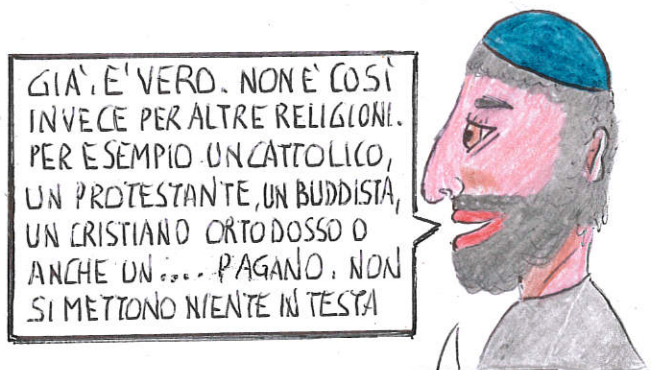 GIÀ, E' VERO. NON E' COSÌ
INVECE PER ALTRE RELIGIONI.
PER ESEMPIO UN CATTOLICO,
UN PROTESTANTE, UN BUDDISTA,
UN CRISTIANO ORTODOSSO O
ANCHE UN .... PAGANO. NON
SI METTONO NIENTE IN TESTA